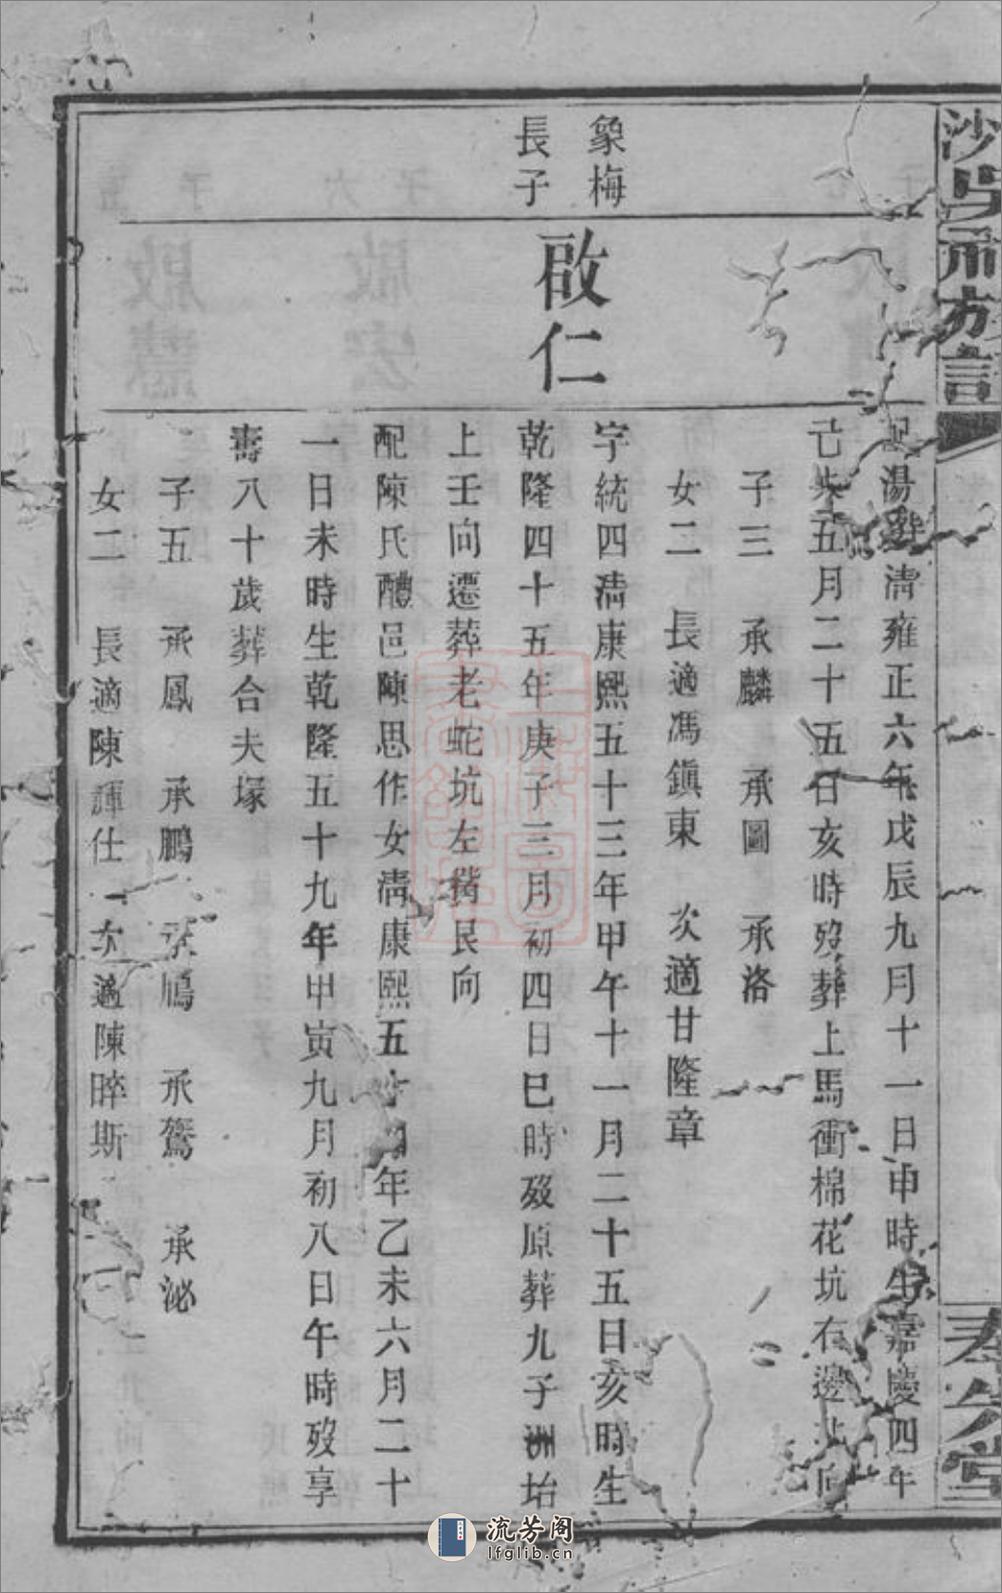 沙吳
族譜
配湯氏清雍正六年戊辰九月十一日申時生嘉慶四年
己未五月二十五日亥時歿葬上馬衝棉花坑右邊北向
子三　承麟　承圖　承洛
女二　長適馮鎮東　次適甘隆章
象梅
長子
啟仁
字統四清康熙五十三年甲午十一月二十五日亥時生
乾隆四十五年庚子三月初四日巳時歿原葬九子洲坮
上壬向遷葬老蛇坑左艮向
配陳氏醴邑陳思作女清康熙五十四年乙未六月二十
一日未時生乾隆五十九年甲寅九月初八日午時歿享
壽八十歲葬合夫塚
子五　承鳳　承鵬　承鳲　承鴛　承泌
女二　長適陳譚仕　次適陳晬斯
堂
流芳阁
lfglib.cn